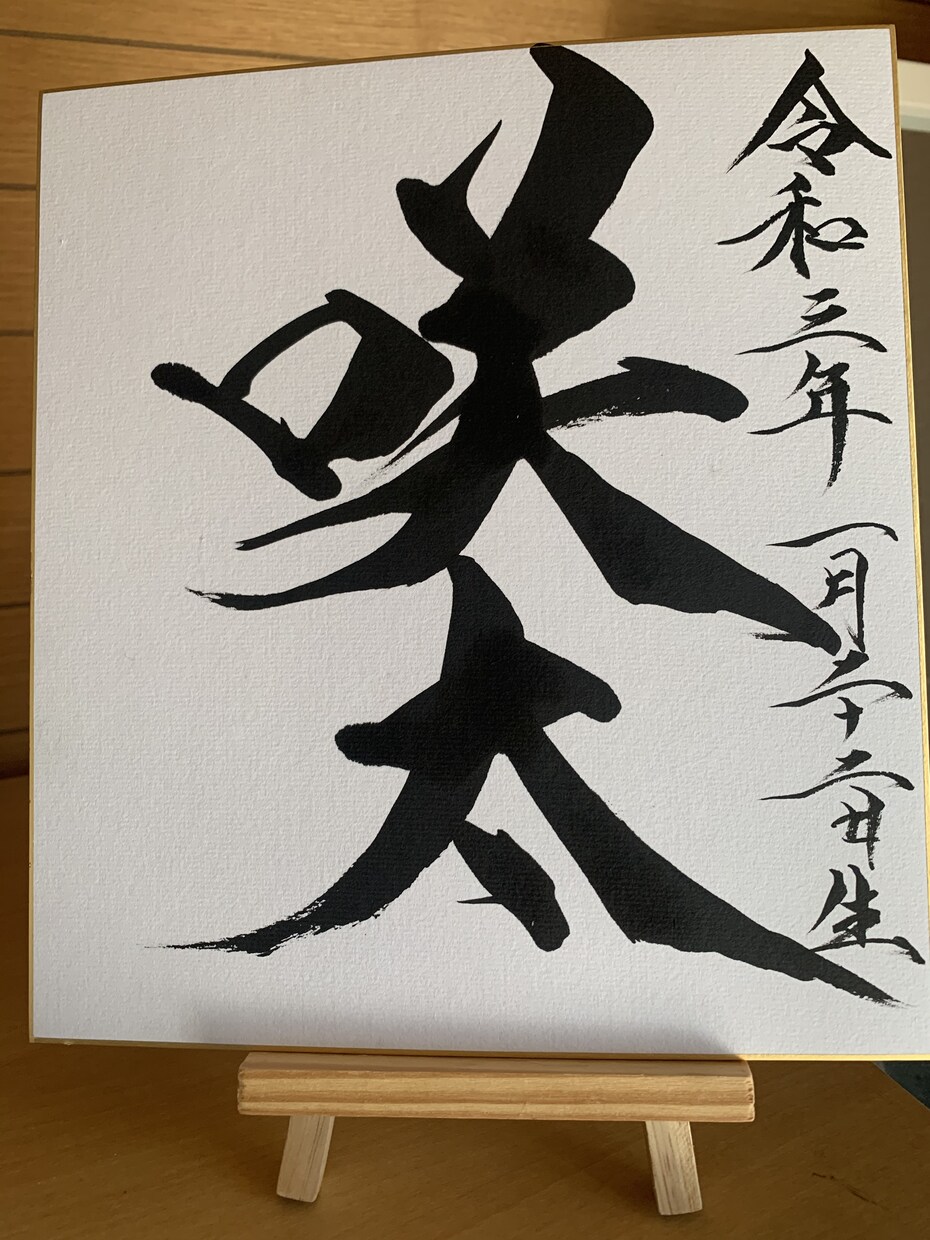 令和三年一月二十二日生
咲太